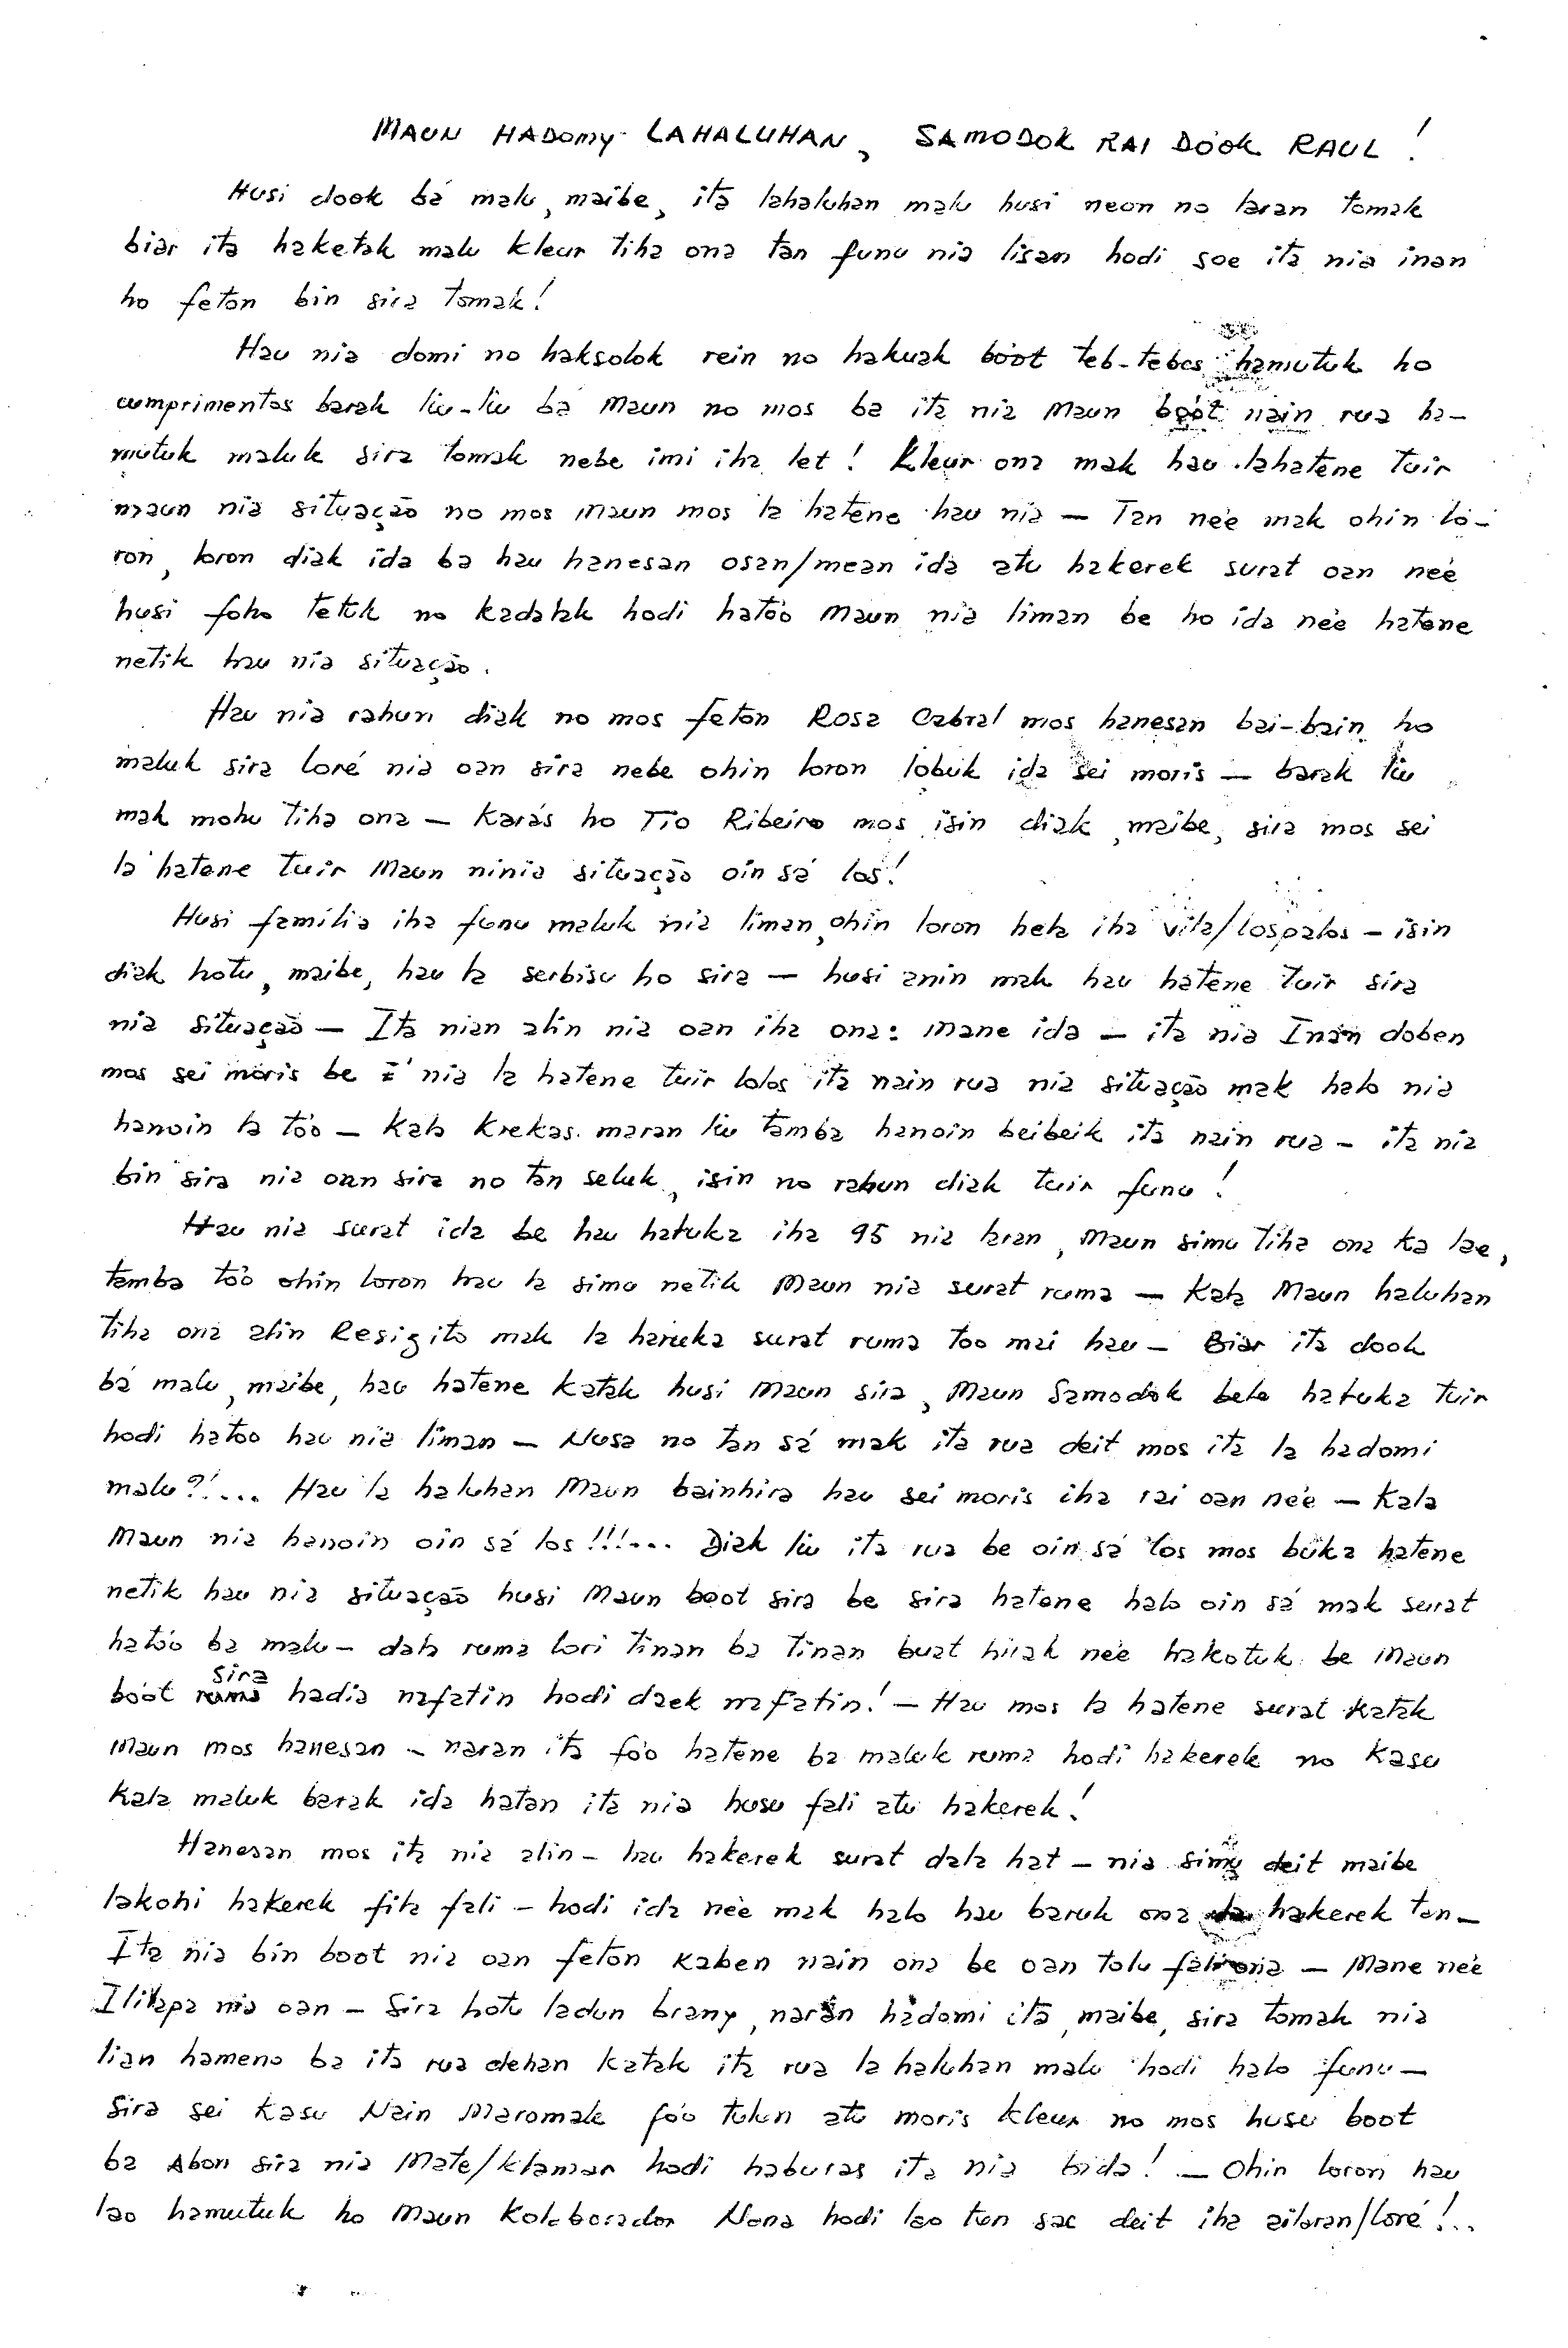 MAUN HADOMY LAHALUHAN, SAMODOK RAI DÓOK RAUL!
Husi dook bá malu, maibe, ita lahaluhan malu husi neon no laran tomak
biar ita haketak malu kleur tiha ona tan funu nia lisan hodi soe ita nia inan
ho feton bin sira tomak!
Hau nia domi no haksolok rein no hakuak bóot teb-tebes hamutuk ho
cumprimentos barak liu-liu ba Maun no mos ba ita nia Maun bóot nain rua ha-
mutuk maluk sira tomak nebe imi iha let! Kleur ona mak hau lahatene tuir
maun nia situação no mos Maun mos la hatene hau nia — Tan neé mak ohin lo-
ron, loron diak ida ba hau hanesan osan/mean ida atu hakerek surat oan neé
husi foho tetuk no kadalak hodi hatóo Maun nia liman be ho ida neé hatene
netik hau nia situação.
Hau nia rahun diak no mos feton Rosa Cabral mos hanesan bai-bain ho
maluk sira Loré nia oan sira nebe ohin loron lobuk ida sei moris — barak liu
mak mohu tiha ona — Karás ho Tio Ribeiro mos isin diak, maibe, sira mos sei
la hatene tuir Maun ninia situação oin sá los!
Husi familia iha funu maluk nia liman, ohin loron hela iha vila/lospalos — isin
diak hotu, maibe, hau la serbisu ho sira — husi anin mak hau hatene tuir sira
nia situação — Ita nian alin nia oan iha ona: mane ida — ita nia Inan doben
mos sei moris be nia la hatene tuir lolos ita nain rua nia situação mak halo nia
hanoin la tóo — Kala krekas maran liu tamba hanoin beibeik ita nain rua — ita nia
bin sira nia oan sira no tan seluk, isin no rahun diak tuir funu!
Hau nia surat ida be hau hatuka iha 95 nia laran, Maun simu tiha ona ka lae,
tamba tóo ohin loron hau la simu netik Maun nia surat ruma — Kala Maun haluhan
tiha ona alin Resigito mak la haruka surat ruma too mai hau — Biar ita dook
bá malu, maibe, hau hatene katak husi Maun sira, Maun Samodok bele hatuka tuir
hodi hatoo hau nia liman — Nusa no tan sá mak ita rua deit mos ita la hadomi
malu?!... Hau la haluhan Maun bainhira hau sei moris iha rai oan neé — Kala
Maun nia hanoin oin sá los!!!... Diak liu ita rua be oin sá los mos buka hatene
netik hau nia situação husi Maun boot sira be sira hatene halo oin sá mak surat
hatóo ba malu — dala ruma lori tinan ba tinan buat hirak neé hakotuk be Maun
bóot sira hadia nafatin hodi daek nafatin! — Hau mos la hatene surat katak
Maun mos hanesan — naran ita fóo hatene ba maluk ruma hodi hakerek no Kasu
Kala maluk barak ida hatan ita nia husu fali atu hakerek!
Hanesan mos ita nia alin — hau hakerek surat dala hat — nia simu deit maibe
lakohi hakerek fila fali — hodi ida neé mak halo hau baruk ona hakerek tan —
Ita nia bin boot nia oan feton Kaben nain ona be oan tolu fali ona — Mane neé
Ilitapa nia oan — Sira hotu ladun brany, narán hadomi ita, maibe, sira tomak nia
lian hameno ba ita rua dehan katak ita rua la haluhan malu hodi halo funu —
Sira sei Kasu Nain Maromak fóo tulun atu moris kleur no mos husu boot
ba Abon sira nia Mate/klamar hodi haburas ita nia bida! — Ohin loron hau
lao hamutuk ho Maun Kolaborador Nona hodi lao tun sae deit iha ailaran/Loré!..